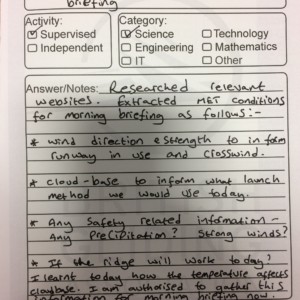 briefing
Activity: Category:
Supervised Science Technology
Independent Engineering Mathematics
IT Other
Answer/Notes: Researched relevant
websites. Extracted MET conditions
for morning briefing as follows:-
* wind direction & strength to inform
runway in use and crosswind.
* cloud-base to inform what launch
method we would use today.
* Any Safety related information -
Any Precipitation? Strong winds?
* If the ridge will work today?
I learnt today how the temperature affects
cloudbase. I am authorised to gather this
information for morning briefing now.